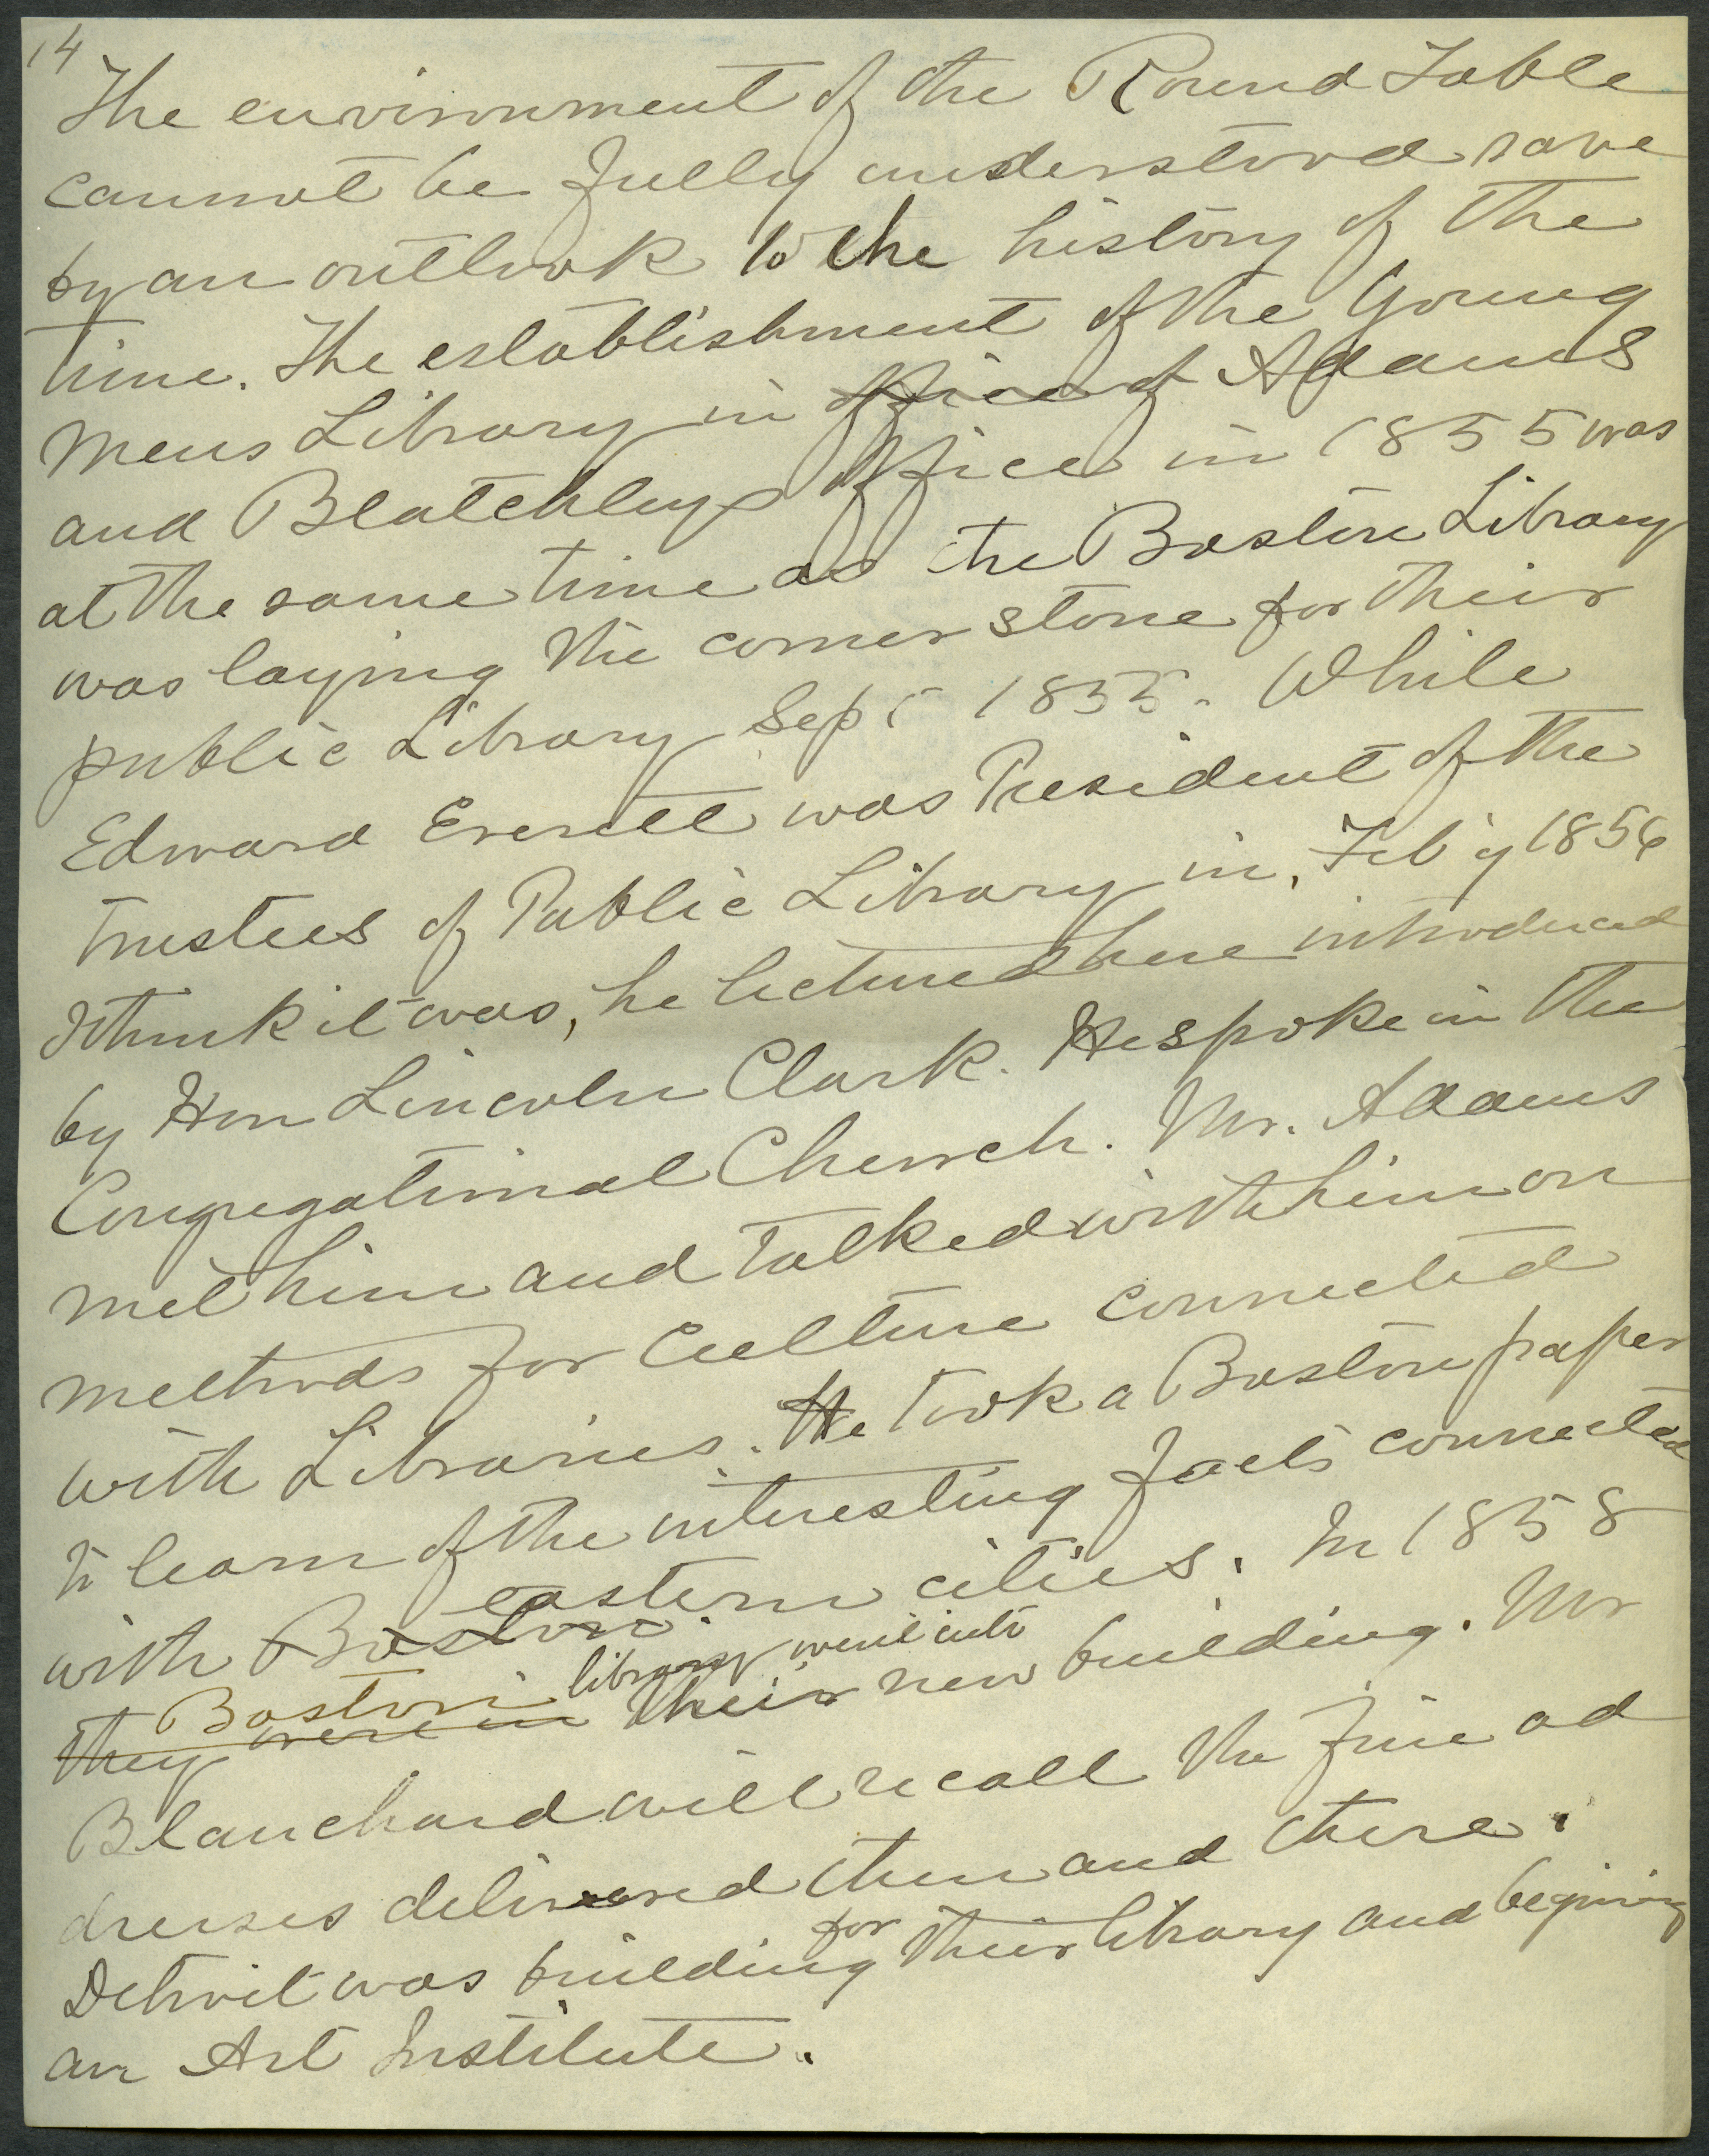 14
The environment of the Round Table
cannot be fully understood save
by an outlook to the history of the
time. The establishment of the Young
Mens Library in office of Adams
and Blatchleys office in 1855 was
at the same time as the Boston Library
was laying the corner stone for their
public Library Sept 1855. While
Edward Everett was President of the
Trustees of Public Library in, Feb'y 1856
I think it was, he lectured here introduced
by Hon Lincoln Clark. He spoke in the
Congregational Church. Mr. Adams
met him and talked with him on
methods for Culture connected
with Libraries. He took a Boston paper
to learn of the interesting facts connected
with Boston eastern cities. In 1858
Boston library went into
they were in their new building. Mr
Blanchard will recall the fine ad
dresses delivered then and there.
Detroit was building for their library and begining
an Art Institute.